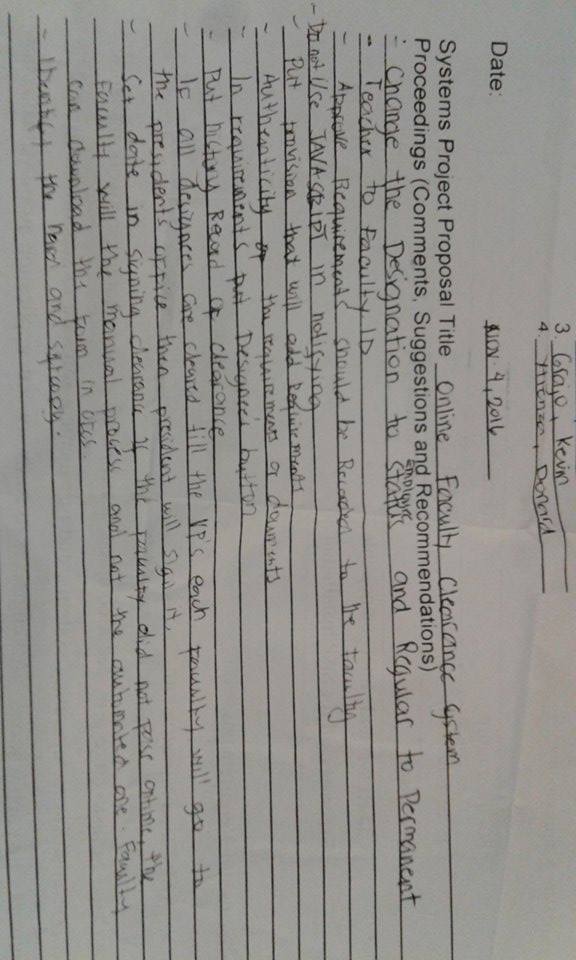 3. Grajo, Kevin
4. Donard
Date: NOV. 4, 2016
Systems Project Proposal Title Online Faculty Clearance System
Proceedings (Comments, Suggestions and Recommendations)
- Change the Designation to employee status and Regular to Permanent
- Teacher to Faculty ID
- Approve Requirements should be Recorded to the Faculty
- Do not Use JAVASCRIPT in notifying
- Put provision that will add Requirements
- Authenticity of the requirements or douments
- In requirements put Designee's button
- Put history Record of clearance
- If all designees are cleared till the VP's each faculty will go to
the presidents office then president will sign it.
- Set date in signing clearance if the faculty did not pass ontime, the
Faculty will the manual process and not the automated one. Faculty
can download the form in
- Identify the hard and